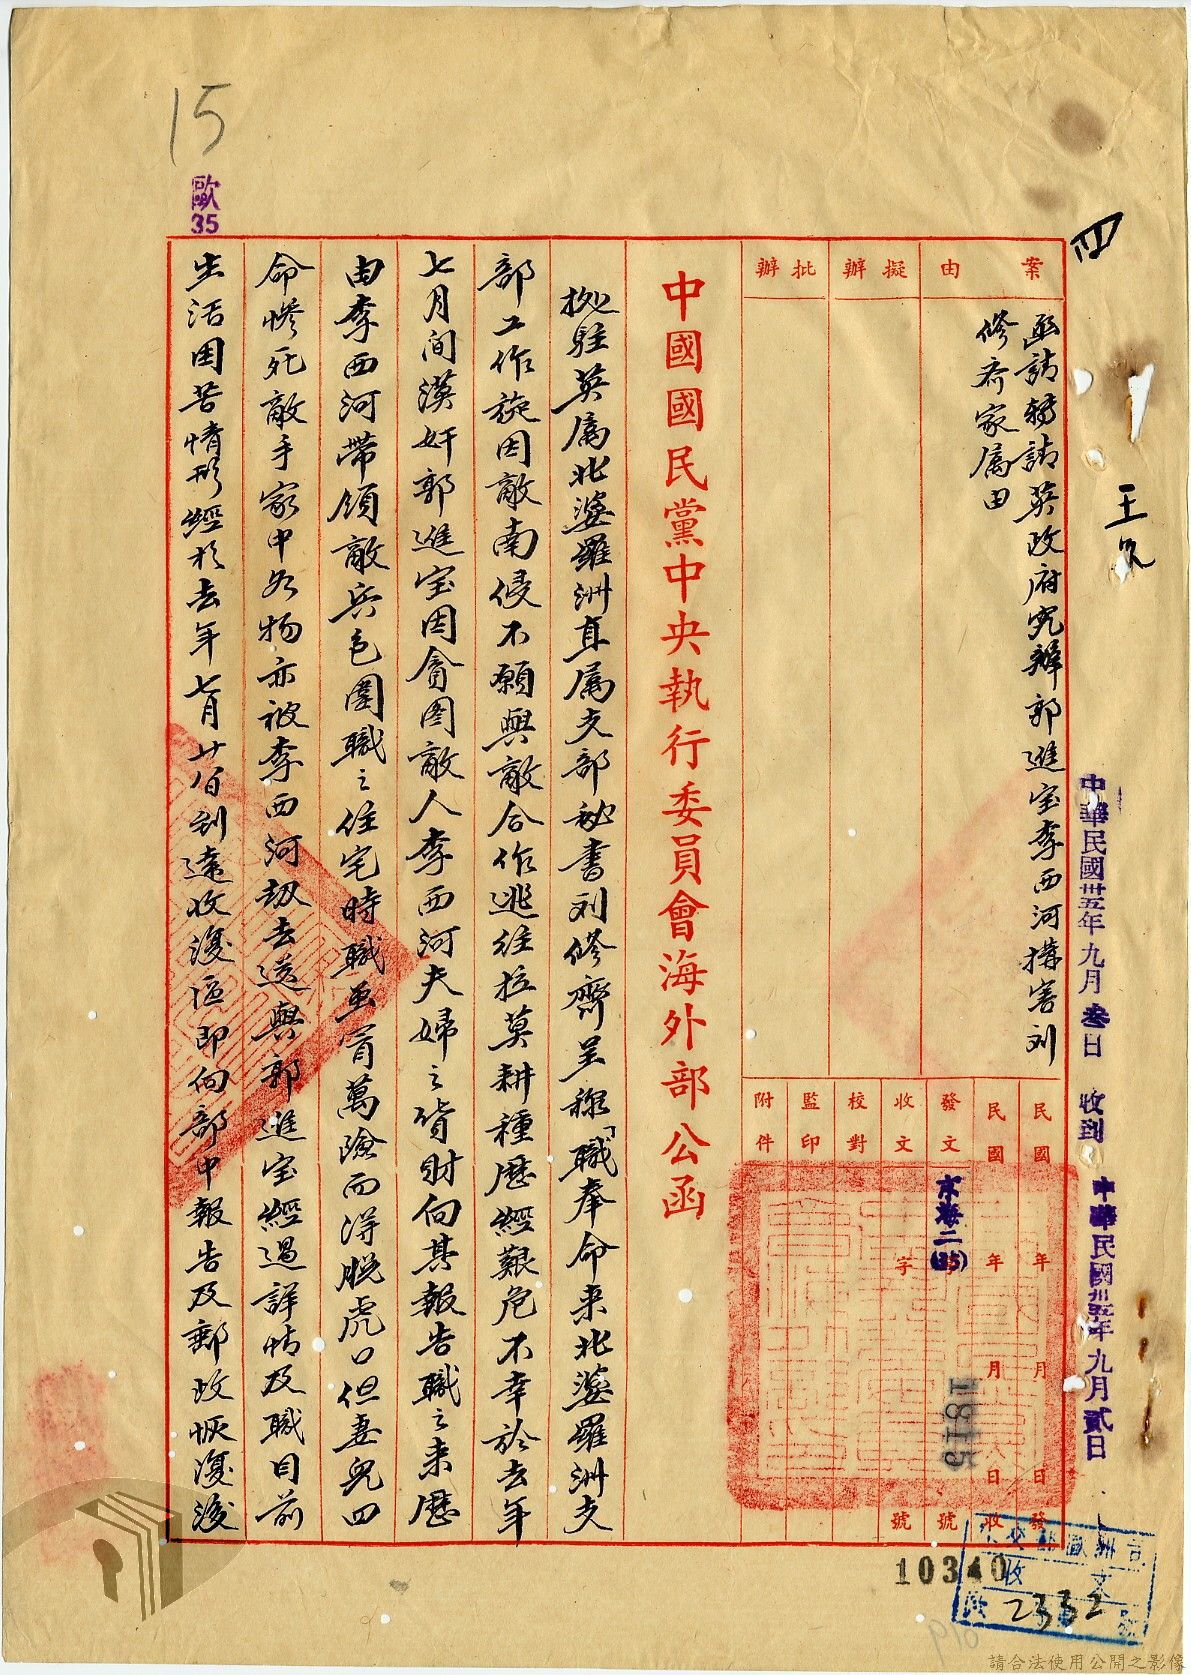 15
歐
35
四
王兄
中華民國卅五年九月叁日 收到
中華民國卅五年九月貳日
案由
函請轉請英政府究辦郭進宝李西河搆害刘
修齊家属由
擬辦
批辦
民國 年 月 日發
民國 年 月 日收
發文 字 號
京海二(35)
11815
收文 字 號
校對
監印
附件
中國國民黨中央執行委員會海外部公函
拠駐英属北婆羅洲直属支部秘書刘修齊呈称「職奉命来北婆羅洲支
部工作旋因敵南侵不願與敵合作逃往拉莫耕種歷經艱危不幸於去年
七月间漢奸郭進宝因貪图敵人李西河夫婦之货财向其報告職之来歷
由李西河带領敵兵包圍職之住宅時職虽冒萬險而得脱虎口但妻兒四
命惨死敵手家中各物亦被李西河刼去送與郭進宝經過詳情及職目前
生活困苦情形經於去年七月廿八日到達收復區即向部中報告及郵政恢復後
10340
收文
2332
請合法使用公開之影像